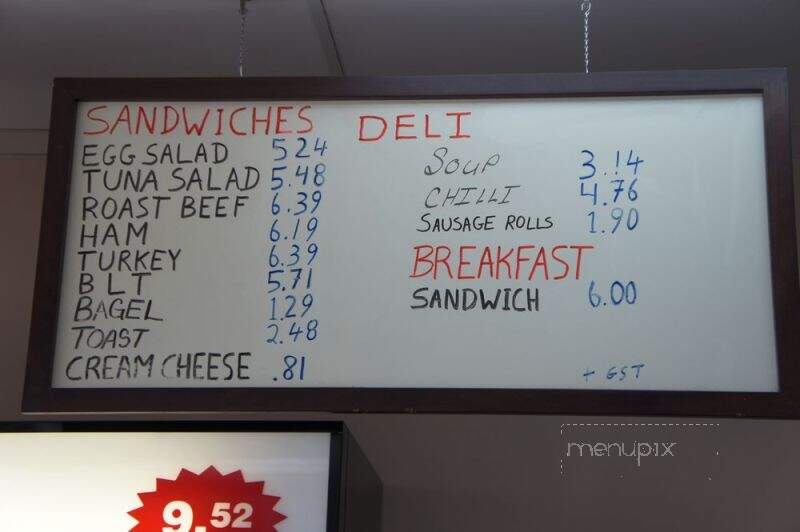 SANDWICHES
EGG SALAD 5 24
TUNA SALAD 5.48
ROAST BEEF 6.39
HAM 6.19
TURKEY 6.39
B L T 5.71
BAGEL 1.29
TOAST 2.48
CREAM CHEESE .81
DELI
SOUP 3.14
CHILLI 4.76
SAUSAGE ROLLS 1.90
BREAKFAST
SANDWICH 6.00
+ GST
9.52
menupix